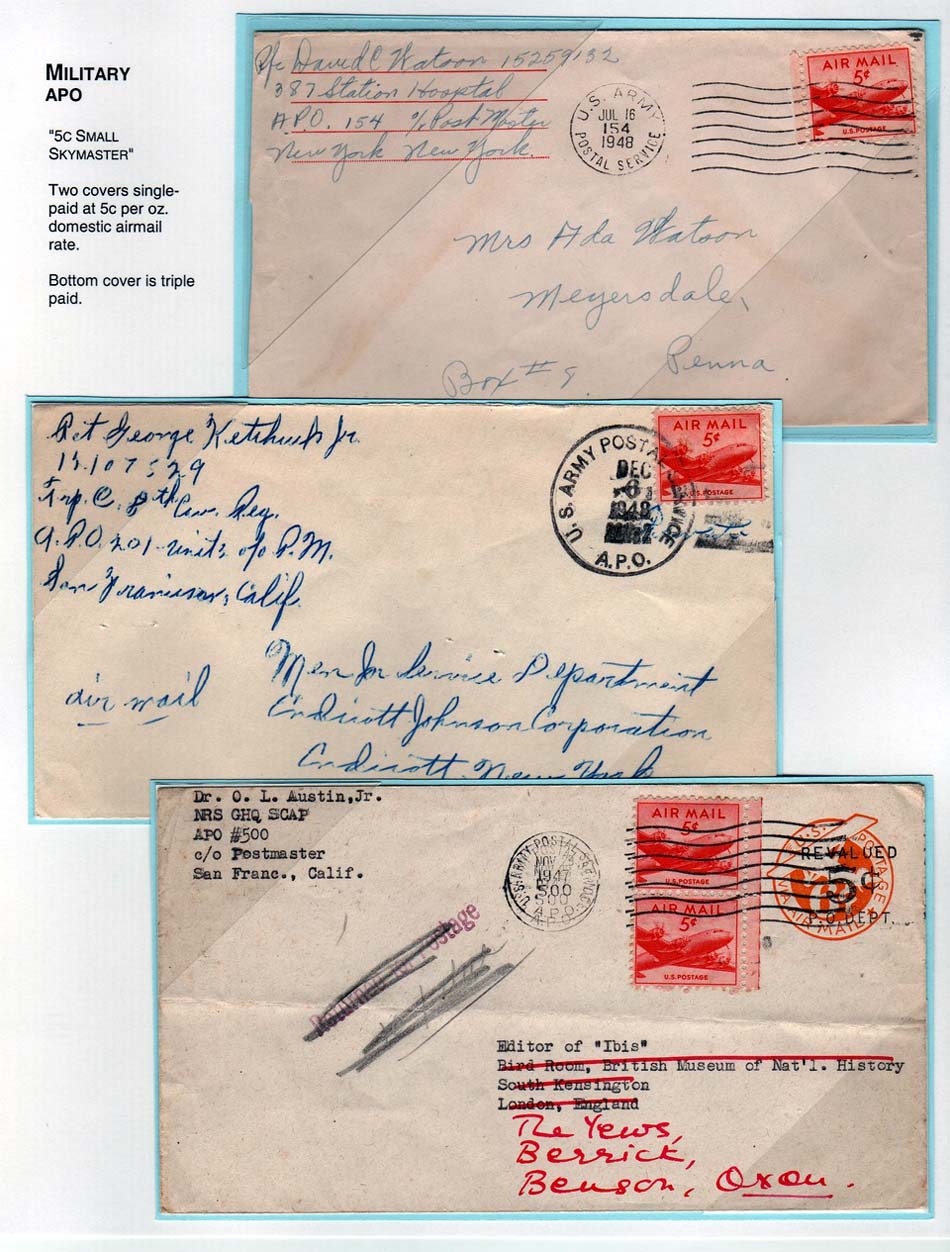 MILITARY
APO
"5C SMALL
SKYMASTER"
Two covers single-
paid at 5c per oz.
domestic airmail
rate.
Bottom cover is triple
paid.
Pfc David C Watson 15259132
387 Station Hospital
A.P.O. 154 c/o Post Master
New York New York.
U.S. ARMY
JUL 16
154
1948
POSTAL SERVICE
AIR MAIL
5¢
U.S. POSTAGE
Mrs Ada Watson
Meyersdale,
Box # 9 Penna
Pvt George Ketchub Jr.
Trp. C. 8th Cav. Reg.
A.P.O. 201 unit 2 c/o P.M.
San Francisco, Calif.
U.S. ARMY POSTAL SERVICE
DEC
1948
A.P.O.
AIR MAIL
5¢
U.S. POSTAGE
air mail
Men In Service Department
Endicott Johnson Corporation
Endicott, New York
Dr. O. L. Austin, Jr.
NRS GHQ SCAP
APO #500
c/o Postmaster
San Franc., Calif.
U.S. ARMY POSTAL SERVICE
NOV
1947
500
A.P.O.
AIR MAIL
5¢
U.S. POSTAGE
AIR MAIL
5¢
U.S. POSTAGE
U.S. POSTAGE
VIA AIR MAIL
REVALUED
5¢
P.O. DEPT.
Returned for Postage
Editor of "Ibis"
Bird Room, British Museum of Nat'l. History
South Kensington
London, England
The Yews,
Berrick,
Benson, Oxon.